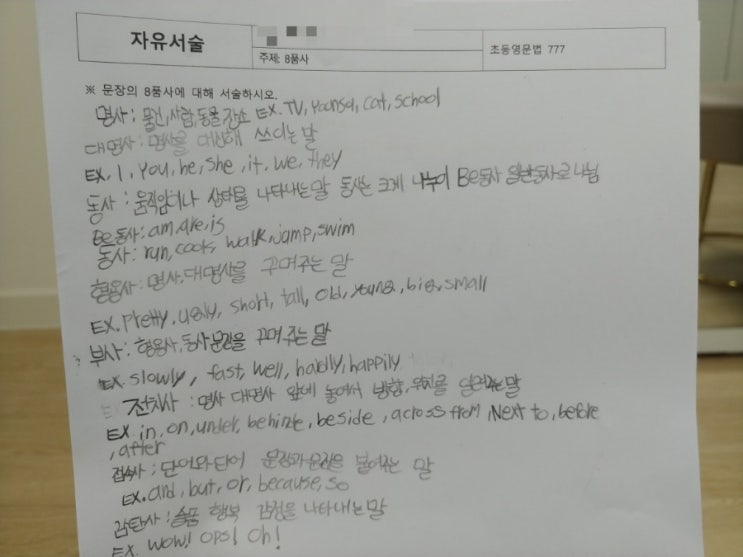 자유서술
주제: 8품사
초등영문법 777
※ 문장의 8품사에 대해 서술하시오.
명사 : 물건, 사람, 동물, 장소 EX. TV, Yoonsol, cat, school
대명사 : 명사를 대신해 쓰이는 말
EX. I, You, he, she, it, we, they
동사 : 움직임이나 상태를 나타내는 말 동사는 크게 나누어 Be동사 일반동사로 나뉨
Be동사: am, are, is
동사 : run, cook, walk, jamp, swim
형용사 : 명사, 대명사를 꾸며주는 말
EX. Pretty, ugly, short, tall, old, young, big, small
부사 : 형용사, 동사 문장을 꾸며주는 말
EX. slowly, fast, well, happily
전치사 : 명사 대명사 앞에 놓여서 방향, 위치를 알려주는 말
EX. in, on, under, behinde, beside, across from, Next to, before
, after
접속사 : 단어와 단어 문장과 문장을 붙여주는 말
EX. and, but, or, because, so
감탄사 : 슬픔 행복 감정을 나타내는 말
EX. wow! ops! Oh!